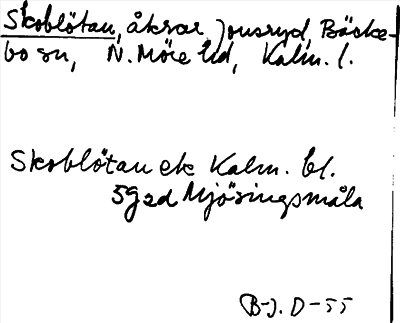 Skoblötan, åkrar, Jonsryd, Bäcke-
bo sn, N. Möre hd, Kalm. l.
Skoblötan ek Kalm. bl.
59 Mjösingsmåla
B-J. D-55